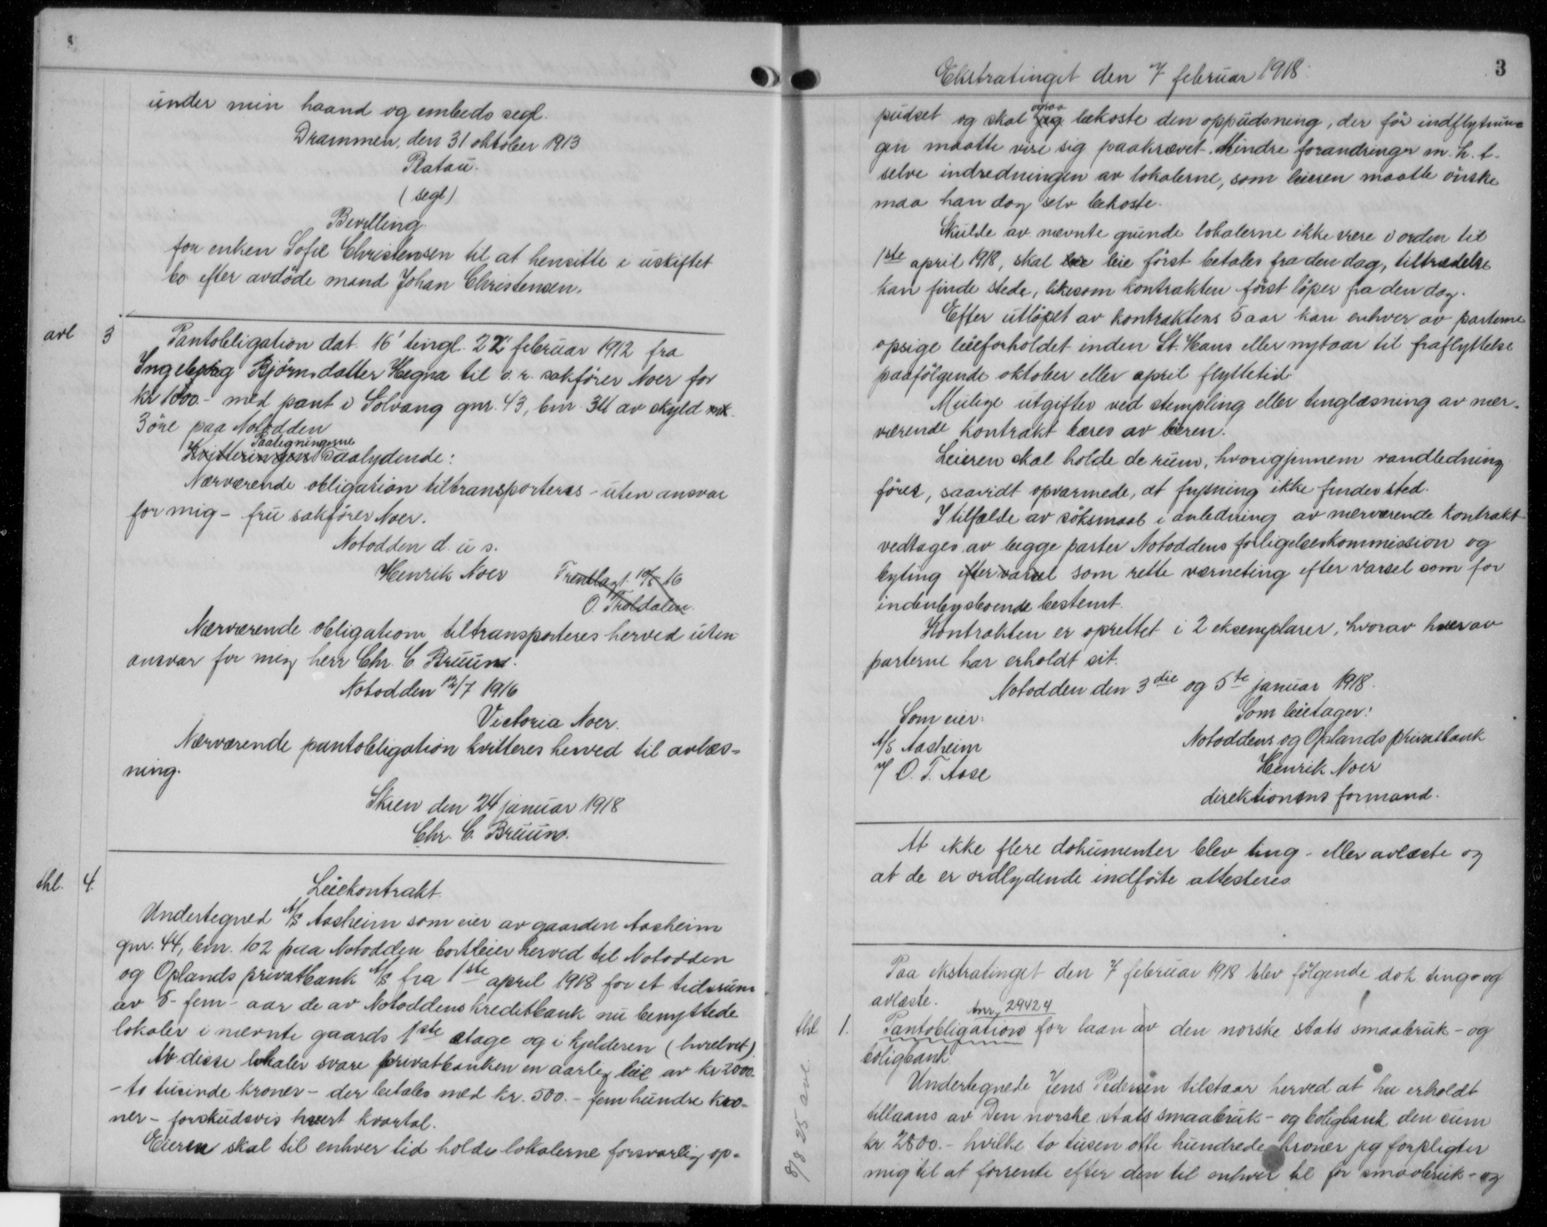 under min haand og embeds segl.
Drammen, den 31 oktober 1913
Platou.
(segl)
Bevilling
for enken Sofie Christensen til at hensitte i uskiftet
bo efter avdöde mand Johan Christensen.
avl 3 Pantobligation dat. 16' tingl. 22' februar 1912 fra
Ingebjørg Bjørnsdatter Hegna til o. r. sakfører Noer for
kr 1000.- med pant i Solvang gnr. 43, bnr 34 av skyld mk.
3 öre paa Notodden
Paategningerne
Kvitteringens saalydende:
Nærværende obligation tiltransporteres - uten ansvar
for mig - fru sakfører Noer.
Notodden d. u s.
Henrik Noer Fremlagt 16/5 16
O. Tholdalen
Nærværende obligation tiltransporteres herved uten
ansvar for mig herr Chr. C. Bruun.
Notodden 12/7 1916
Victoria Noer.
Nærværende pantobligation kvitteres herved til avlæs-
ning.
Skien den 24 januar 1918
Chr. C. Bruun.
thl. 4. Leiekontrakt
Undertegned A/S Aasheim som eier av gaarden Aasheim
gnr. 44, bnr. 102 paa Notodden bortleier herved til Notodden
og Oplands privatbank A/S fra 1ste april 1918 for et tidsrum
av 5 - fem - aar de av Notoddens kreditbank nu benyttede
lokaler i nævnte gaards 1ste etage og i kjelderen (hvælvet)
Av disse lokaler svare privatbanken en aarlig leie av kr 2000.-
- to tusinde kroner - der betales med kr. 500.- fem hundre kro-
ner - forskudsvis hvert kvartal.
Eieren skal til enhver tid holde lokalerne forsvarlig op-
Ekstratinget den 7 februar 1918. 3
ogsaa
pudset og skal og bekoste den oppudsning, der før indflytnin-
gen maatte vise sig paakrævet. Mindre forandringer m. h. t.
selve indredningen av lokalerne, som leieren maatte önske
maa han dog selv bekoste.
Skulde av nævnte grunde lokalerne ikke være i orden til
1ste april 1918, skal leie först betales fra den dag, tiltrædelse
kan finde stede, likesom kontrakten först löper fra den dag.
Efter utlöpet av kontraktens 5 aar kan enhver av parterne
opsige leieforholdet inden St. Hans eller nytaar til fraflyttelse
paafölgende oktober eller april flyttetid
Mulige utgifter ved stempling eller tinglæsning av nær-
værende kontrakt bæres av leieren.
Leieren skal holde de rum, hvorigjennem vandledning
föres, saavidt opvarmede, at frysning ikke finder sted.
I tilfælde av söksmaal i anledning av nærværende kontrakt
vedtages av begge parter Notoddens forligelseskommission og
byting efter varsel som rette værneting efter varsel som for
indenbysboende bestemt.
Kontrakten er oprettet i 2 eksemplarer, hvorav hver av
parterne har erholdt sit.
Notodden den 3die og 5te januar 1918.
Som eier: Som leietager:
A/S Aasheim Notoddens og Oplands privatbank
v/ O. T. Aase Henrik Noer
direktionens formand.
At ikke flere dokumenter blev ting- eller avlæste og
at de er ordlydende indförte attesteres
Paa ekstratinget den 7 februar 1918 blev fölgende dok. ting- og
avlæste.
Anr. 29424
thl 1. Pantobligation for laan av den norske stats smaabruk- og
boligbank
Undertegnede Jens Pedersen tilstaar herved at ha erholdt
tillaans av Den norske stats smaabruk- og boligbank den sum
kr 2800.- hvilke to tusen otte hundrede kroner jeg forpligter
mig til at forrente efter den til enhver tid for smaabruk- og
9/8 25 avl.